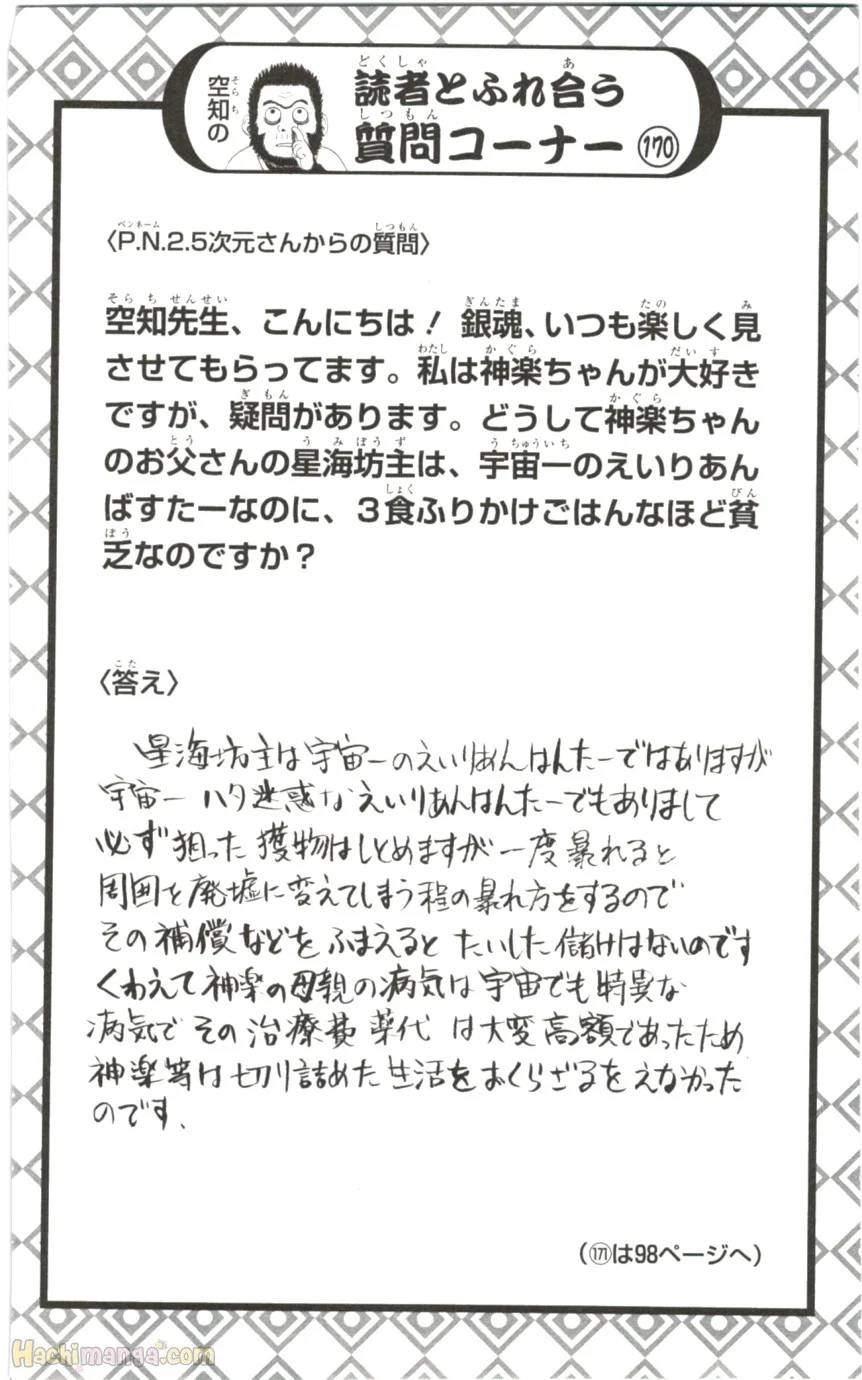 空知の
読者とふれ合う
質問コーナー 170
〈P.N.2.5次元さんからの質問〉
空知先生、こんにちは! 銀魂、いつも楽しく見
させてもらってます。私は神楽ちゃんが大好き
ですが、疑問があります。どうして神楽ちゃん
のお父さんの星海坊主は、宇宙一のえいりあん
ばすたーなのに、3食ふりかけごはんなほど貧
乏なのですか?
〈答え〉
星海坊主は宇宙一のえいりあんはんたーではありますが
宇宙一 ハタ迷惑な えいりあんはんたーでもありまして
必ず狙った獲物はしとめますが 一度暴れると
周囲を廃墟に変えてしまう程の暴れ方をするので
その補償などを ふまえると たいした儲けはないのです
くわえて神楽の母親の病気は宇宙でも特異な
病気で その治療費 薬代 は大変高額であったため
神楽等は切り詰めた生活をおくらざるをえなかった
のです.
(171は98ページへ)
Hachimanga.com